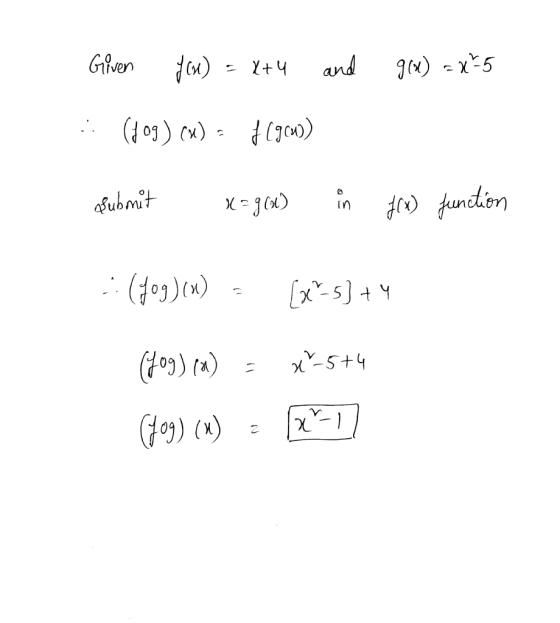 Given f(x) = x+4 and g(x) = x²-5
∴ (fog)(x) = f(g(x))
Submit x=g(x) in f(x) function
∴ (fog)(x) = [x²-5]+4
(fog)(x) = x²-5+4
(fog)(x) = x²-1